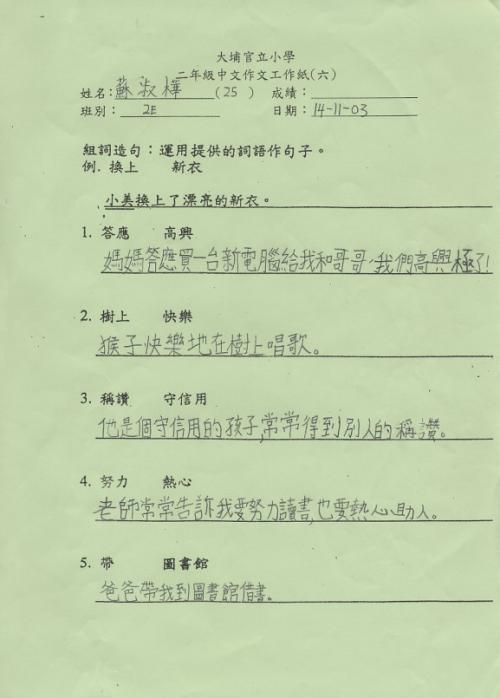 大埔官立小學
二年級中文作文工作紙(六)
姓名:蘇淑樺(25) 成績:
班別: 2E 日期: 14-11-03
組詞造句:運用提供的詞語作句子。
例. 換上 新衣
小美換上了漂亮的新衣。
1. 答應 高興
媽媽答應買一台新電腦給我和哥哥,我們高興極了!
2. 樹上 快樂
猴子快樂地在樹上唱歌。
3. 稱讚 守信用
他是個守信用的孩子,常常得到別人的稱讚。
4. 努力 熱心
老師常常告訴我要努力讀書,也要熱心助人。
5. 帶 圖書館
爸爸帶我到圖書館借書。